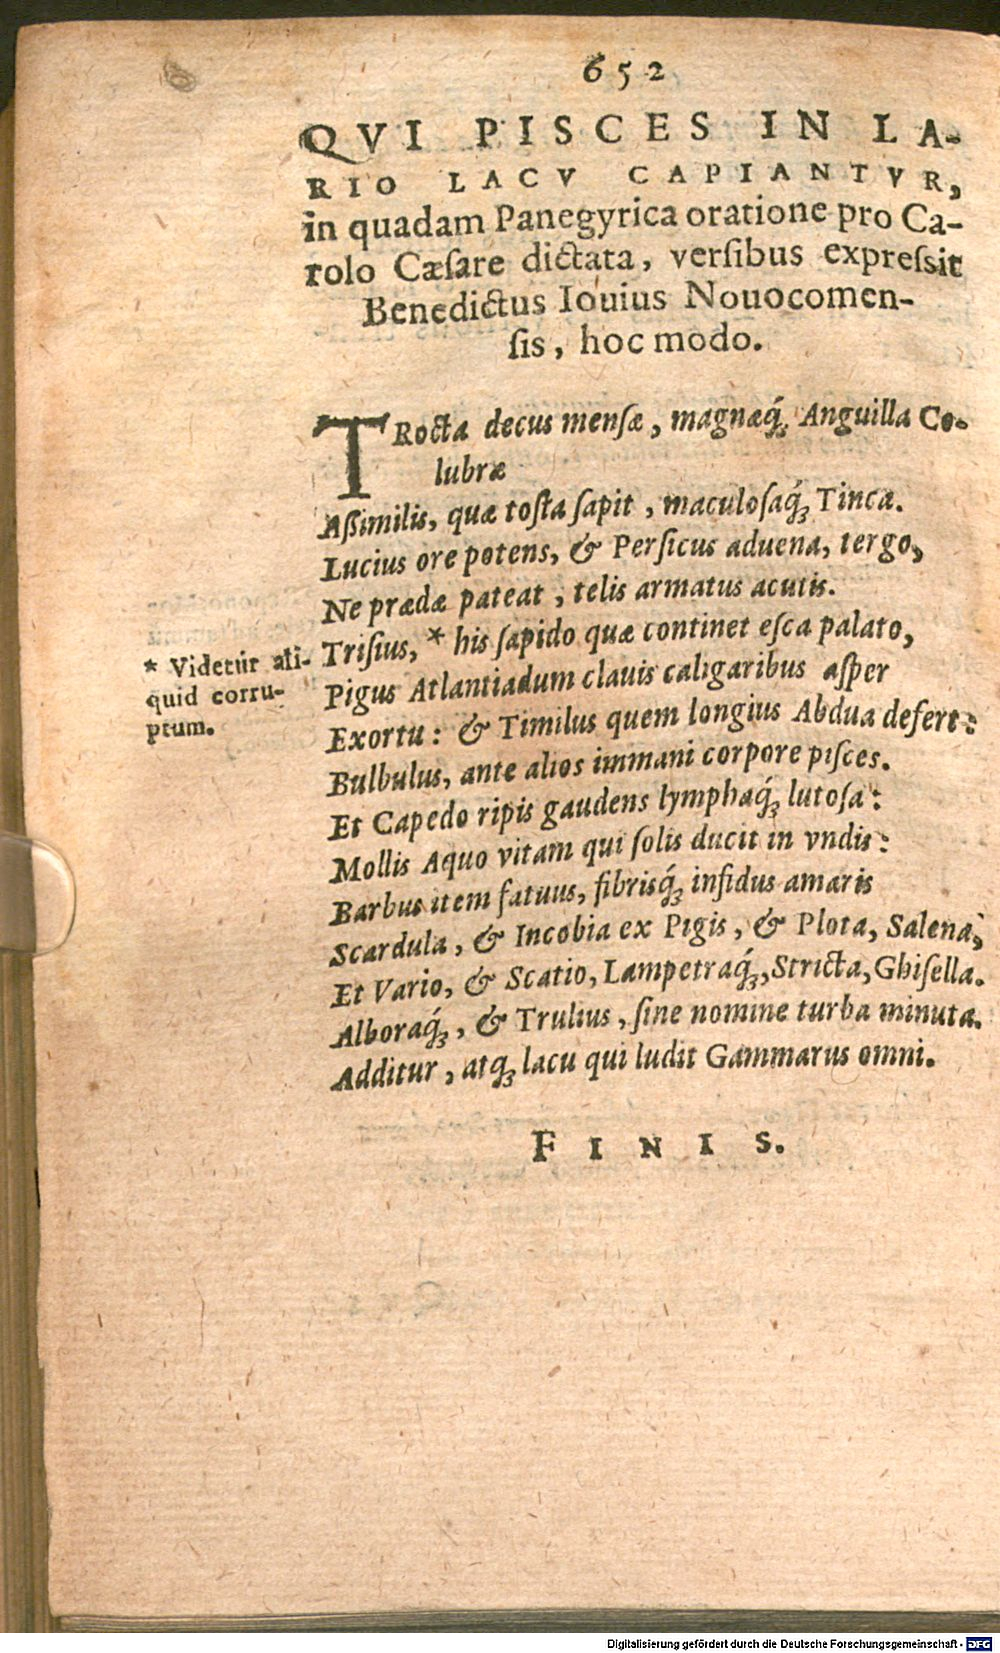 652
QVI PISCES IN LA-
RIO LACV CAPIANTVR,
in quadam Panegyrica oratione pro Ca-
rolo Cæſare dictata, verſibus expreſsit
Benedictus Iouius Nouocomen-
ſis, hoc modo.
TRocta decus menſæ, magnæq́ꝫ Anguilla Co-
lubræ
Aſſimilis, quæ toſta ſapit, maculoſaq́ꝫ Tinca.
Lucius ore potens, & Perſicus aduena, tergo,
Ne prædæ pateat, telis armatus acutis.
Triſius, * his ſapido quæ continet eſca palato,
* Videtur ali-
quid corru-
ptum.
Pigus Atlantiadum clauis caligaribus aſper
Exortu: & Timilus quem longius Abdua defert:
Bulbulus, ante alios immani corpore piſces.
Et Capedo ripis gaudens lymphaq́ꝫ lutoſa:
Mollis Aquo vitam qui ſolis ducit in vndis:
Barbus item fatuus, fibrisq́ꝫ infidus amaris
Scardula, & Incobia ex Pigis, & Plota, Salena,
Et Vario, & Scatio, Lampetraq́ꝫ, Stricta, Ghiſella.
Alboraq́ꝫ, & Trulius, ſine nomine turba minuta.
Additur, atqꝫ lacu qui ludit Gammarus omni.
FINIS.
Digitalisierung gefördert durch die Deutsche Forschungsgemeinschaft - DFG